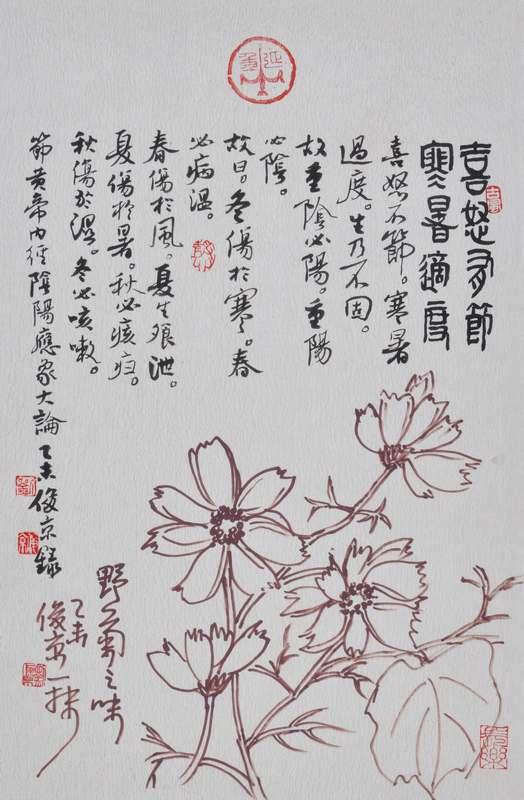 喜怒有節
寒暑適度
喜怒不節。寒暑
過度。生乃不固。
故重陰必陽。重陽
必陰。
故曰。冬傷於寒。春
必病温。
春傷於風。夏生飧泄。
夏傷於暑。秋必痎疟。
秋傷於湿。冬必咳嗽。
節黄帝内经陰陽應象大論 乙未俊京録
野菊之味
乙未
俊京一抹